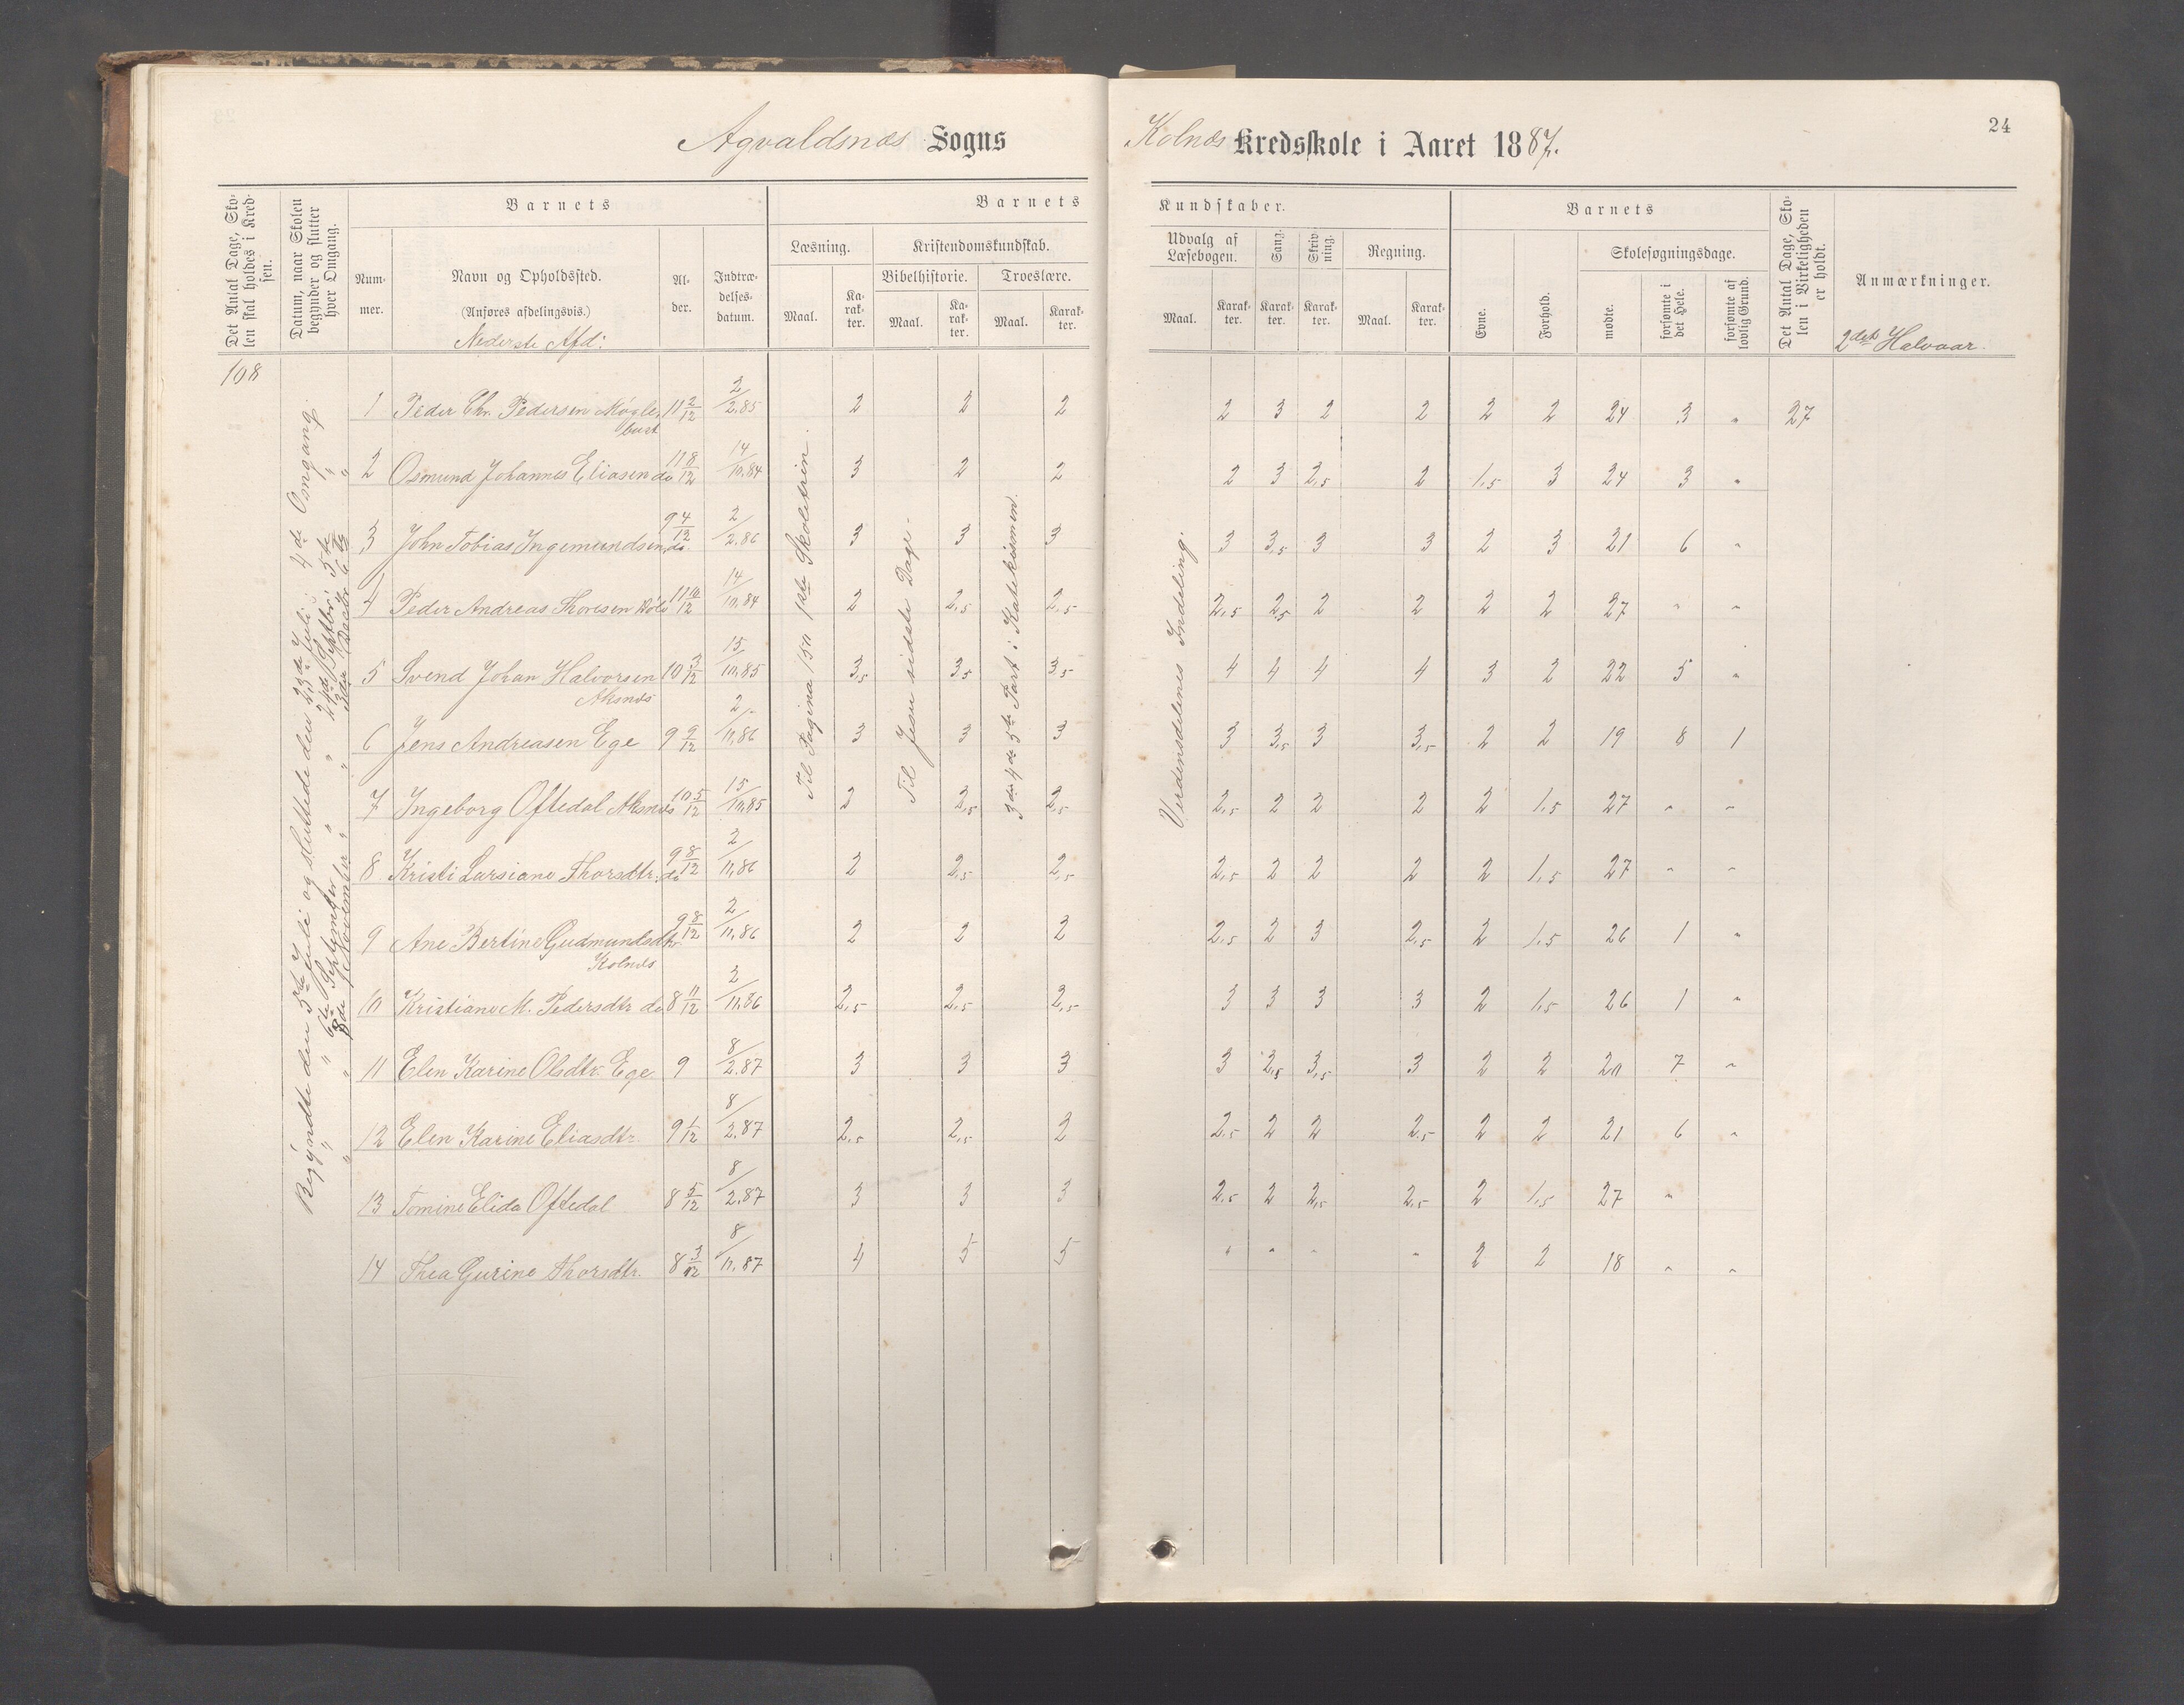 Agvaldsnæs Sogns
Kolnæs Kredsskole i Aaret 1887.
24
Det Antal Dage, Skolen skal holdes i Kredsen.
Datum, naar Skolen begynder og slutter hver Omgang.
Barnets
Nummer.
Navn og Opholdssted.
(Anføres afdelingsvis.)
Nederste Afd:
Alder.
Indtrædelsesdatum.
Barnets
Kundskaber.
Læsning.
Maal.
Karakter.
Kristendomskundskab.
Bibelhistorie.
Maal.
Karakter.
Troeslære.
Maal.
Karakter.
Udvalg af Læsebogen.
Maal.
Karakter.
Sang.
Karakter.
Skrivning.
Karakter.
Regning.
Maal.
Karakter.
Barnets
Evne.
Forhold.
Skolesøgningsdage.
mødte.
forsømte i det Hele.
forsømte af lovlig Grund.
Det Antal Dage, Skolen i Virkeligheden er holdt.
Anmærkninger.
2det Halvaar.
108
Begyndte den 5te Juli og sluttede den 23de Juli 4de Omgang.
Til Pagina 150 1ste Skoletrin.
Til Jesu sidste Dage.
3die 4de 5te Part i Katekismen.
Verdensdelenes Inddeling.
1 Peder Chr. Pedersen Møglebust 11 2/12 2/2.85 2 2 2 2 3 2 2 2 2 24 3 " 27
2 Osmund Johannes Eliasen do 11 8/12 14/10.84 3 2 2 2 3 2,5 2 1,5 3 24 3 "
3 John Tobias Ingemundsen do. 9 4/12 2/2.86 3 3 3 3 3,5 3 3 2 3 21 6 "
4 Peder Andreas Thoresen 14/10.84 2 2,5 2,5 2,5 2,5 2 2 2 2 27 " "
5 Svend Johan Halvorsen Aksnæs 10 3/12 15/10.85 3,5 3,5 3,5 4 4 4 4 3 2 22 5 "
6 Jens Andreasen Ege 9 9/12 2/11.86 3 3 3 3 3,5 3 3,5 2 2 19 8 1
7 Ingeborg Oftedal Aksnæs 10 5/12 15/10.85 2 2,5 2,5 2,5 2 2 2 2 1,5 27 " "
8 Kristi Larsiane Thorsdtr. do 9 8/12 2/11.86 2 2,5 2,5 2,5 2 2 2 2 1,5 27 " "
9 Ane Bertine Gudmundsdtr. Kolnæs 9 8/12 2/11.86 2 2 2 2,5 2 3 2,5 2 1,5 26 1 "
10 Kristiane M. Pedersdtr do 8 11/12 2/11.86 2,5 2,5 2,5 3 3 3 3 2 1,5 26 1 "
11 Elen Karine Olsdtr. Ege 9 8/2.87 3 3 3 3 2,5 3,5 3 2 2 20 7 "
12 Elen Karine Eliasdtr 9 1/12 8/2.87 2,5 2,5 2 2,5 2 2 2,5 2 2 21 6 "
13 Tomine Elida Oftedal 8 5/12 8/2.87 3 3 3 2,5 2 2,5 2,5 2 1,5 27 "
14 Thea Gurine Thorsdtr. 8 3/12 8/11.87 4 5 5 " " " " 2 2 18 " "